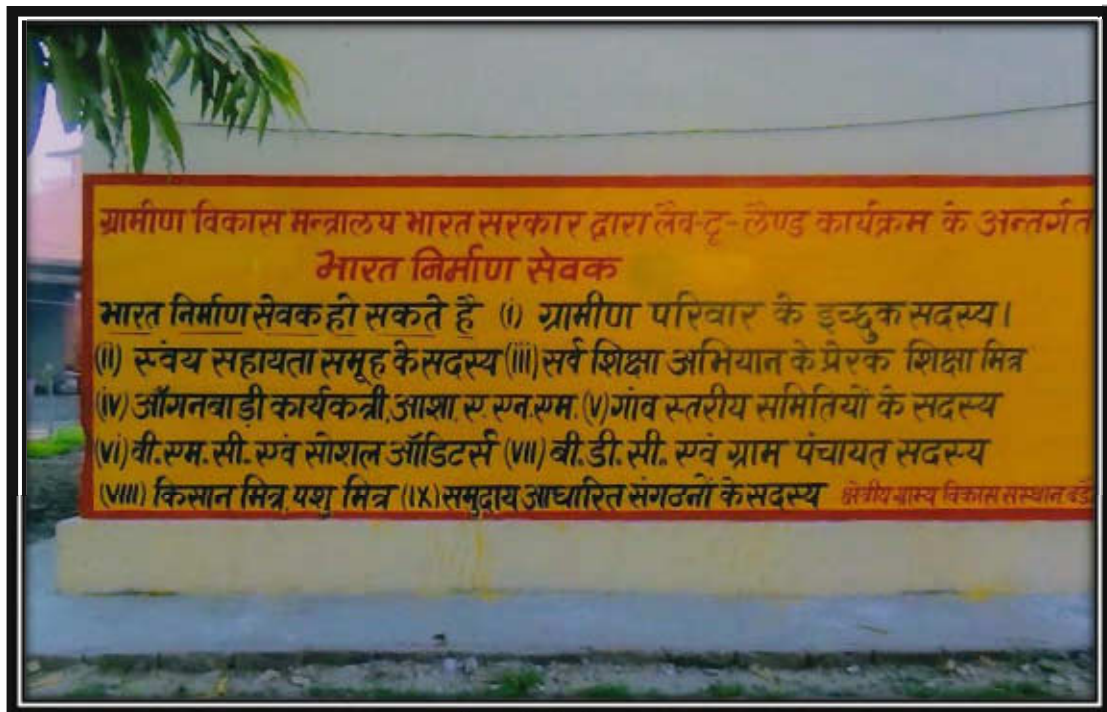 ग्रामीण विकास मन्त्रालय भारत सरकार द्वारा लैव-टू-लैण्ड कार्यक्रम के अन्तर्गत
भारत निर्माण सेवक
भारत निर्माण सेवक हो सकते है (i) ग्रामीण परिवार के इच्छुक सदस्य।
(ii) स्वंय सहायता समूह के सदस्य (iii) सर्व शिक्षा अभियान के प्रेरक शिक्षा मित्र
(iv) ऑगनबाड़ी कार्यकत्री, आशा, ए.एन.एम. (v) गांव स्तरीय समितियों के सदस्य
(vi) वी.एम.सी. एवं सोशल ऑडिटर्स (vii) बी.डी.सी. एवं ग्राम पंचायत सदस्य
(viii) किसान मित्र, पशु मित्र (ix) समुदाय आधारित संगठनों के सदस्य क्षेत्रीय ग्राम्य विकास संस्थान